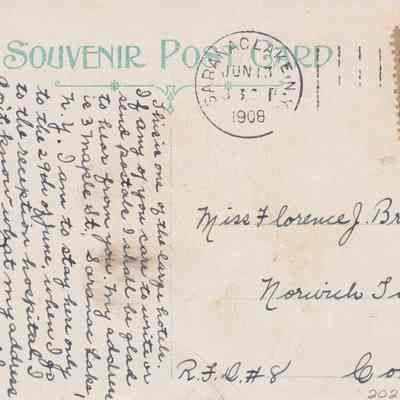 SOUVENIR POST CARD
SARANAC LAKE, N.Y.
JUN 13
1908
This is one of the large hotels.
If any of you care to write or
send postals I shall be glad
to hear from you. My address
is 3 Maple St., Saranac Lake,
N. Y. I am to stay here only
to the 29th of June when I go
to the reception hospital. I
don't know what my address
Miss Florence J. Br
Norwich
R.F.D. #8
Co
202